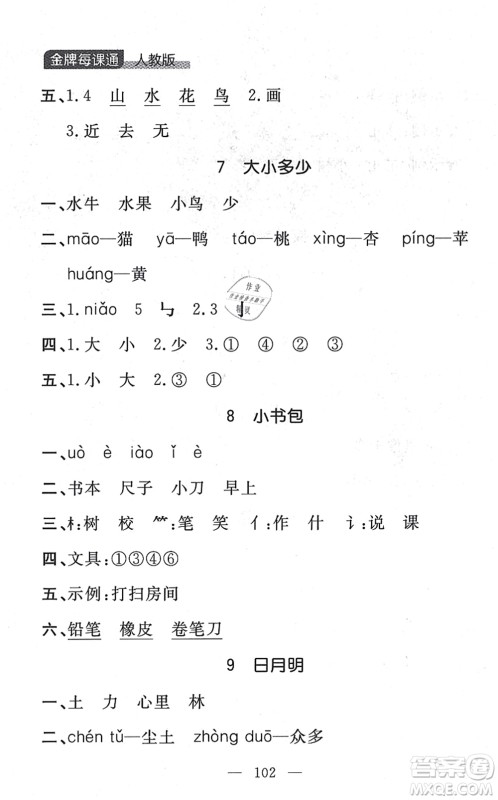 金牌每课通 人教版
五、1.4 山 水 花 鸟 2.画
3.近 去 无
7 大小多少
一、水牛 水果 小鸟 少
二、māo—猫 yā—鸭 táo—桃 xìng—杏 píng—苹
huáng—黄
三、1.niǎo 5 ㄣ 2.3 亅
四、1.大 小 2.少 3.① ④ ② ①
五、1.小 大 2.③ ①
8 小书包
一、uò è iào ǐ è
二、书本 尺子 小刀 早上
三、木:树 校 ⺮:笔 笑 亻:作 什 讠:说 课
四、文具:①③④⑥
五、示例:打扫房间
六、铅笔 橡皮 卷笔刀
9 日月明
一、土 力 心里 林
二、chén tǔ—尘土 zhòng duō—众多
— 102 —
作业
精灵
答案圈
MXQE.COM